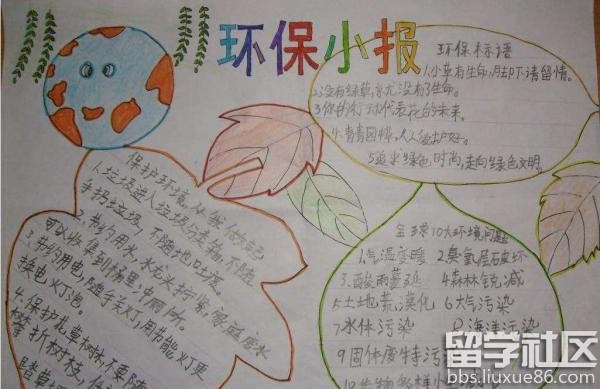 环保小报
环保标语
1.小草有生命,脚下请留情。
2.没有绿草,也无没有了生命。
3.你的行动代表花的未来。
4.青青园. 人人爱护好。
5.追求绿色时尚,走向绿色文明。
保护环境,从我做起
1.垃圾进入垃圾分类箱,不随
手扔垃圾,不随地吐痰。
2.节约用水,水龙头拧紧,家庭废水
可以收集到桶里,冲厕所。
3.节约用电,随手关灯,用节能灯更
换电灯泡。
4.保护花草树木,不要随
折树枝,
全球10大环境问题
1.气温变暖 2臭氧层破坏
3.酸雨蔓延 4森林锐减
5土地荒漠化 6大气污染
7水体污染 8海洋污染
9固体废特污
10生物多样
留学社区
bbs.liuxue86.com